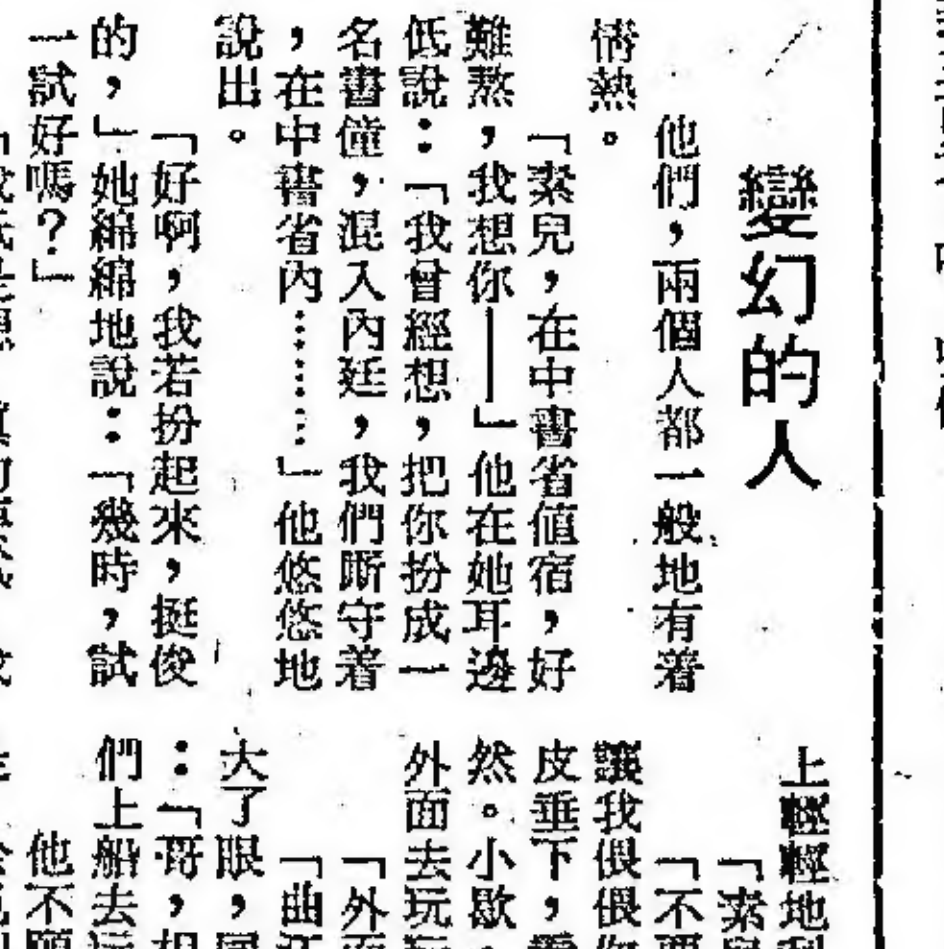 變幻的人
他們，兩個人都一般地有着
情熱。
「素兒，在中書省値宿，好
難熬，我想你——」他在她耳邊
低說：「我曾經想，把你扮成一
名書僮，混入內廷，我們厮守着
，在中書省內………」他悠悠地
說出。
「好啊，我若扮起來，挺俊
的，」她綿綿地說：「幾時，試
一試好嗎？」
上輕輕地
「素
「不要
讓我偎偎你
皮垂下，
然。小歇，
外面去玩玩
「外面
「曲江
大了眼，
：「哥，相
們上船去玩
他不願